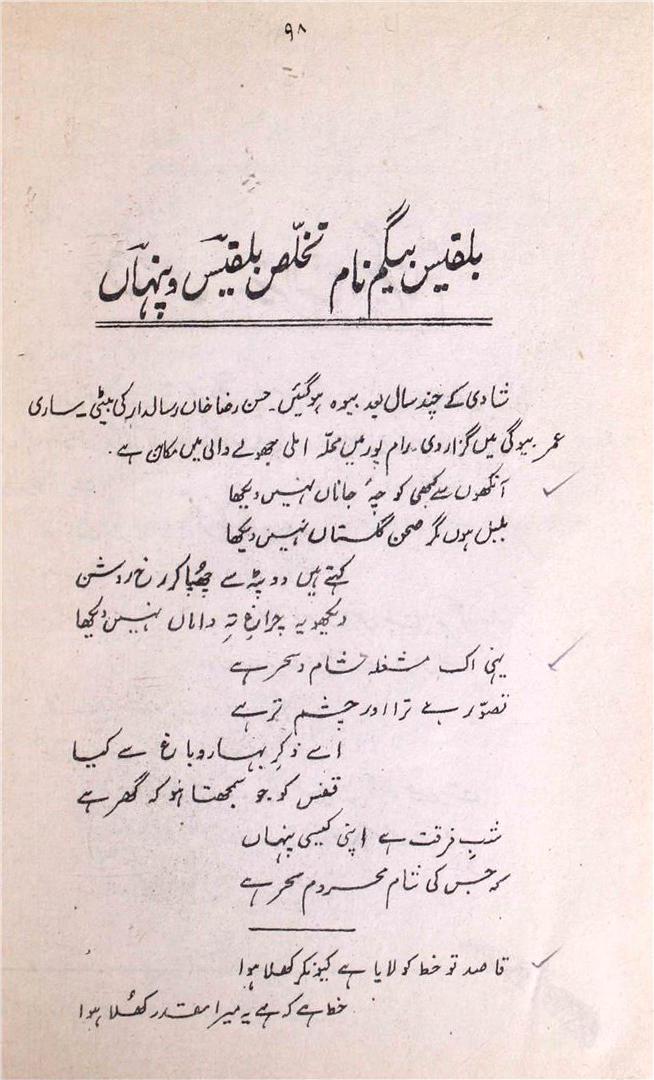 ۹۸
بلقیس بیگم نام تخلّص بلقیسؔ و پنہاںؔ
شادی کے چند سال بعد بیوہ ہوگئیں۔ حسن رضا خاں رسالدار کی بیٹی۔ ساری
عمر بیوگی میں گزار دی۔ رام پور میں محلہ املی جھولے والی میں مکان ہے۔
آنکھوں سے کبھی کوچۂ جاناں نہیں دیکھا
بلبل ہوں مگر صحن گلستاں نہیں دیکھا
کہتے ہیں دوپٹہ سے چھُپا کر رخ روشن
دیکھو یہ چراغِ تہِ داماں نہیں دیکھا
یہی اک مشغلہ شام و سحر ہے
تصوّر ہے ترا اور چشم تر ہے
اسے ذکرِ بہار و باغ سے کیا
قفس کو جو سمجھتا ہو کہ گھر ہے
شبِ فرقت ہے اپنی کیسی پنہاں
کہ جس کی شام محروم سحر ہے
قاصد تو خط کو لایا ہے کیونکر کھلا ہوا
خط ہے کہ ہے یہ میرا مقدر کھُلا ہوا